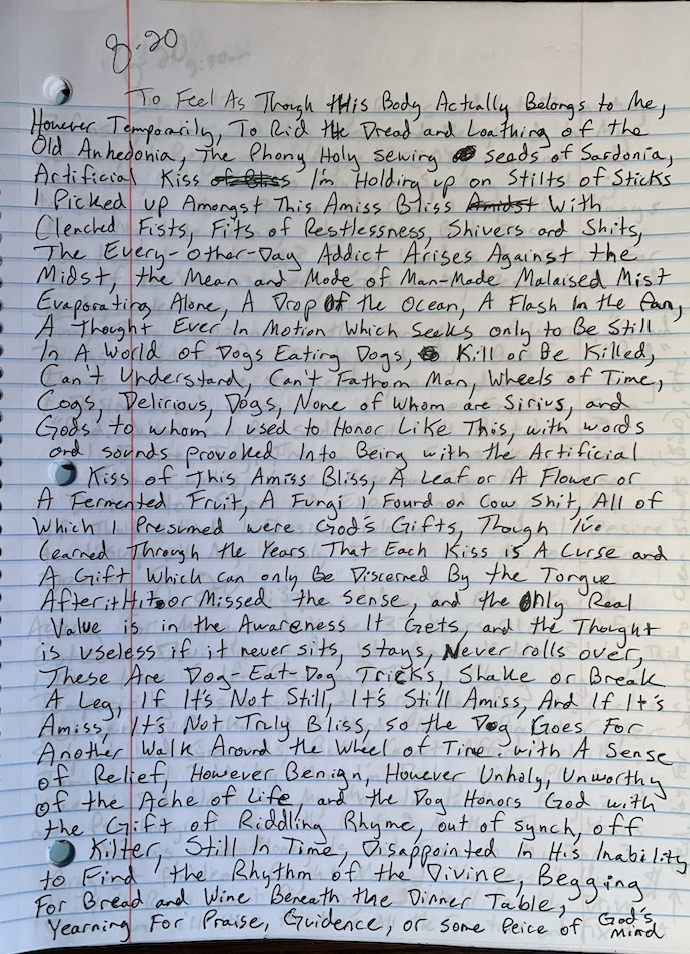 8.20
To Feel As Though this Body Actually Belongs to Me,
However Temporarily, To Rid the Dread and Loathing of the
Old Anhedonia, The Phony Holy sewing seeds of Sardonia,
Artificial Kiss I'm Holding up on Stilts of Sticks
I Picked up Amongst This Amiss Bliss With
Clenched Fists, Fits of Restlessness, Shivers and Shits,
The Every-Other-Day Addict Arises Against the
Midst, the Mean and Mode of Man-Made Malaised Mist
Evaporating Alone, A Drop Of the Ocean, A Flash In the Pan,
A Thought Ever In Motion Which Seeks only to Be Still
In A World of Dogs Eating Dogs, Kill or Be Killed,
Can't Understand, Can't Fathom Man, Wheels of Time,
Cogs, Delirious, Dogs, None of Whom are Sirius, and
Gods to whom I used to Honor Like This, with words
and sounds provoked Into Being with the Artificial
Kiss of This Amiss Bliss, A Leaf or A Flower or
A Fermented Fruit, A Fungi I Found on Cow Shit, All of
Which I Presumed were God's Gifts, Though I've
Learned Through the Years That Each Kiss is A Curse and
A Gift Which can only Be Discerned By the Tongue
After it Hits or Missed the Sense, and the Only Real
Value is in the Awareness It Gets, and the Thought
is useless if it never sits, stays, Never rolls over,
These Are Dog-Eat-Dog Tricks, Shake or Break
A Leg, If It's Not Still, It's Still Amiss, And If It's
Amiss, It's Not Truly Bliss, so the Dog Goes For
Another Walk Around the Wheel of Time with A Sense
of Relief, However Benign, However Unholy, Unworthy
of the Ache of Life, and the Dog Honors God with
the Gift of Riddling Rhyme, out of synch, off
Kilter, Still In Time, Disappointed In His Inability
to Find the Rhythm of the Divine, Begging
For Bread and Wine Beneath the Dinner Table,
Yearning For Praise, Guidence, or some Peice of God's
Mind